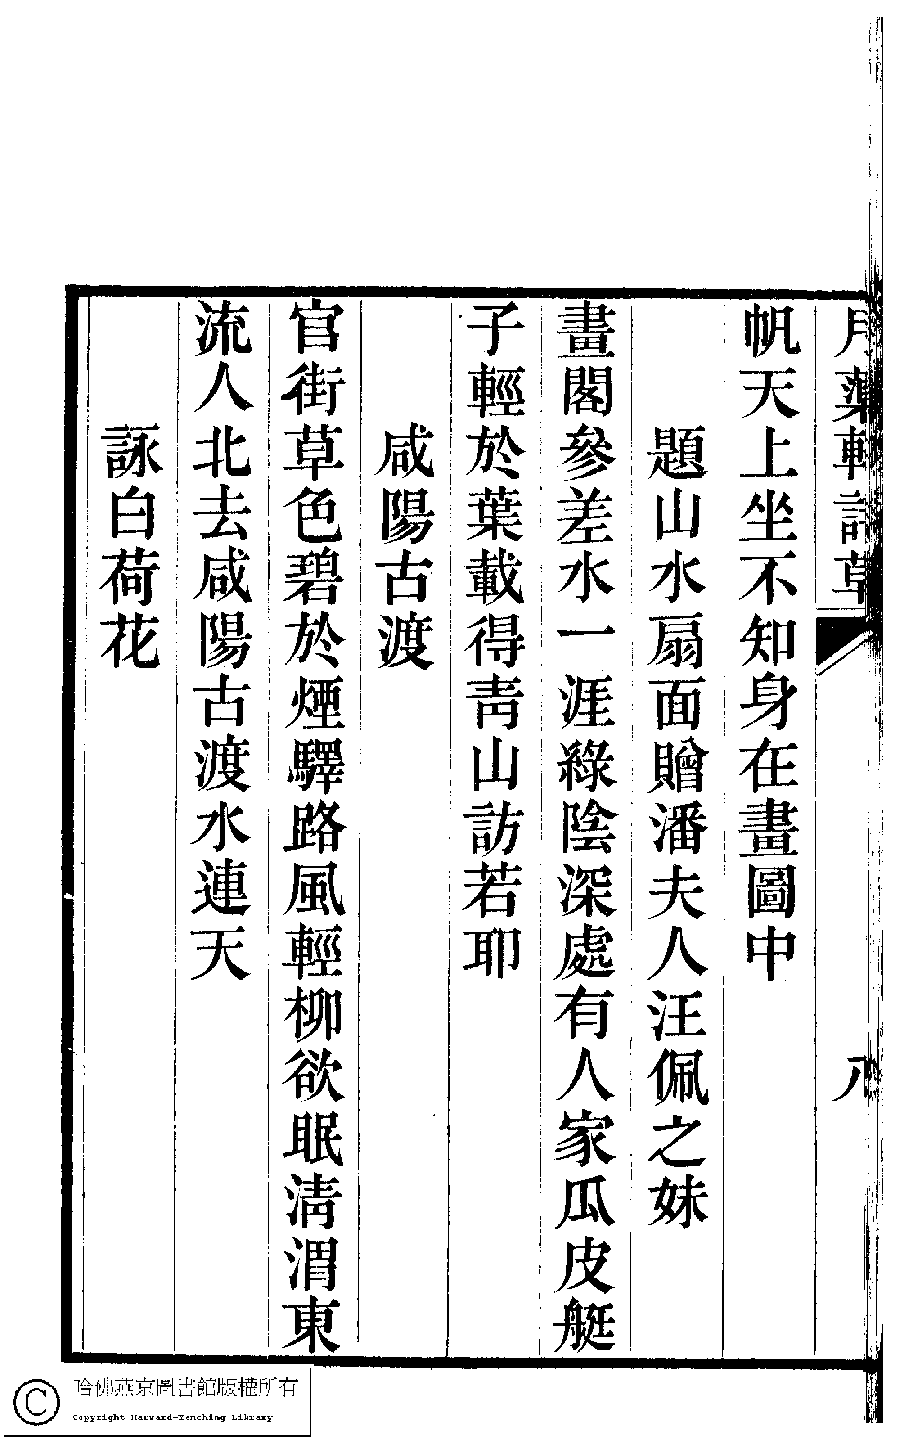 月蕖軒詩草
八
帆天上坐不知身在畫圖中
題山水扇面贈潘夫人汪佩之妹
畫閣參差水一涯綠陰深處有人家瓜皮艇
子輕於葉載得靑山訪若耶
咸陽古渡
官街草色碧於煙驛路風輕柳欲眠淸渭東
流人北去咸陽古渡水連天
詠白荷花
哈佛燕京圖書館版權所有
Copyright Harvard-Yenching Library